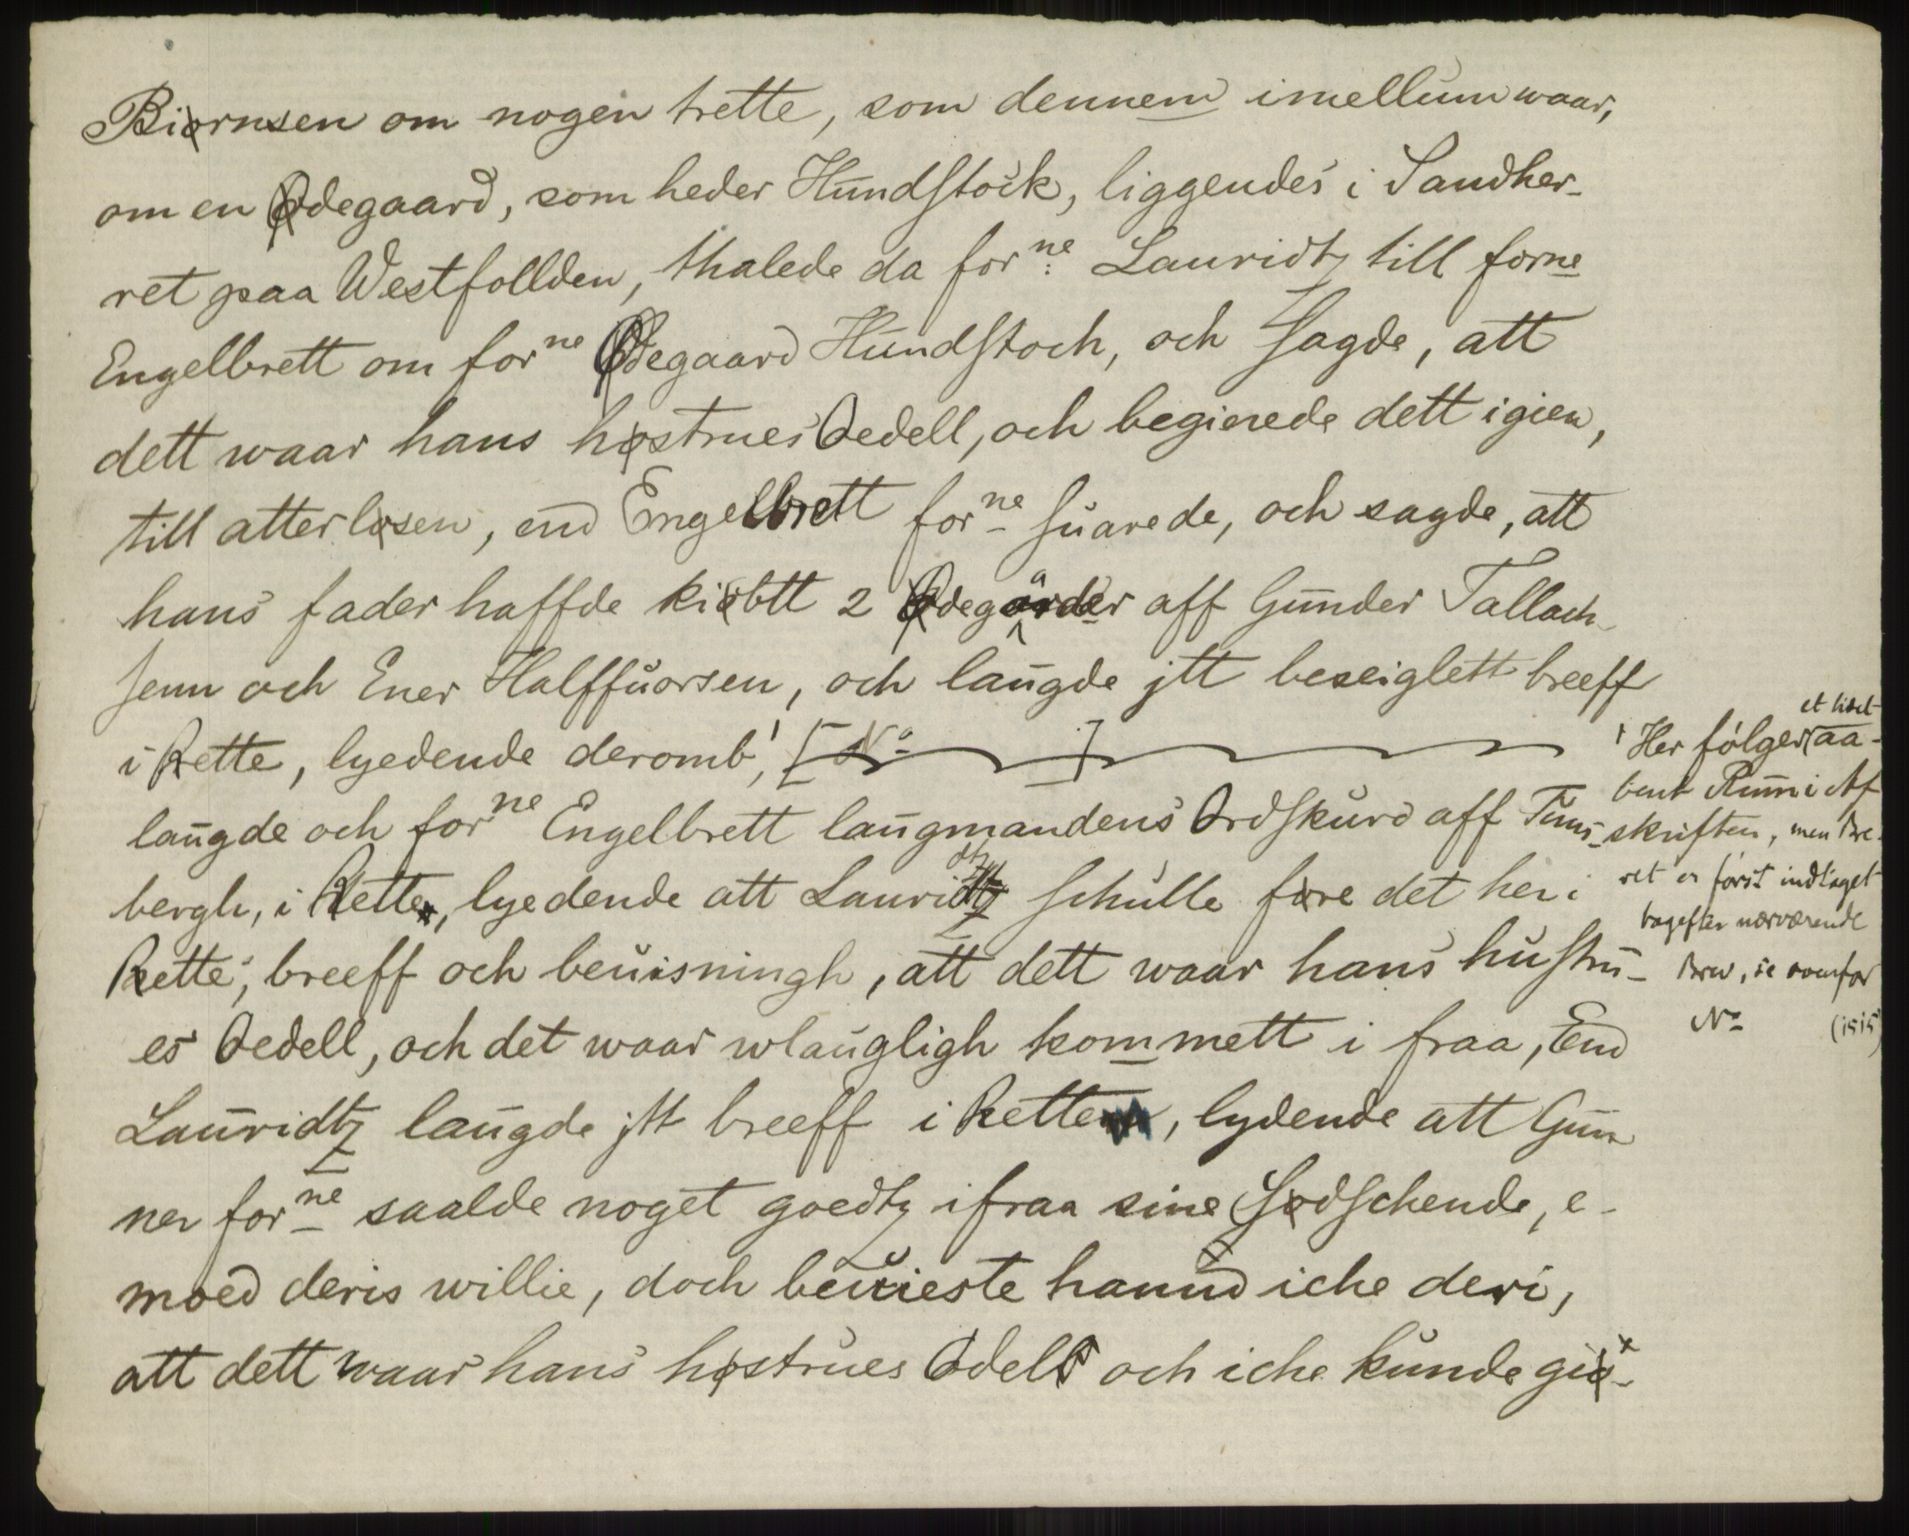 Biørnsen om nogen trette, som dennem imellum waar,
om en Ødegaard, som heder Hundstock, liggendes i Sandher-
ret paa Westfollden, thalede da forne Lauridtz till forne
Engelbrett om forne Ødegaard Hundstoch, och sagde, att
dett waar hans høstrues Oedell, och begierede dett igien,
till atterløsen, end Engelbrett forne suarede, och sagde, att
hans fader haffde kiøbtt 2 Ødegaarder aff Gunder Tallach-
senn och Ener Halffuorsen, och laugde jtt beseiglett breeff
i Rette, lyedende deromb,¹ [No ]
laugde och forne Engelbrett laugmandens Ordskurd aff Tuns-
bergh, i Rette, lyedende att Lauridtz schulle føre det her i
Rette, breeff och beuisningh, att dett waar hans hustru-
es Oedell, och det waar wlaugligh kommett i fraa, End
Lauridtz laugde jtt breeff i Rette, lydende att Gun
ner forne saalde noget goedtz ifraa sine Sødschende, e-
moed deris willie, doch beuieste hannd iche deri,
att dett waar hans høstrues Odell och iche kunde giø-
¹ Her følger et lidet aa-
bent Rum i Af
skriften, men Bre-
vet er først indtaget
bagefter nærværende
Brev, se ovenfor
No (1515)